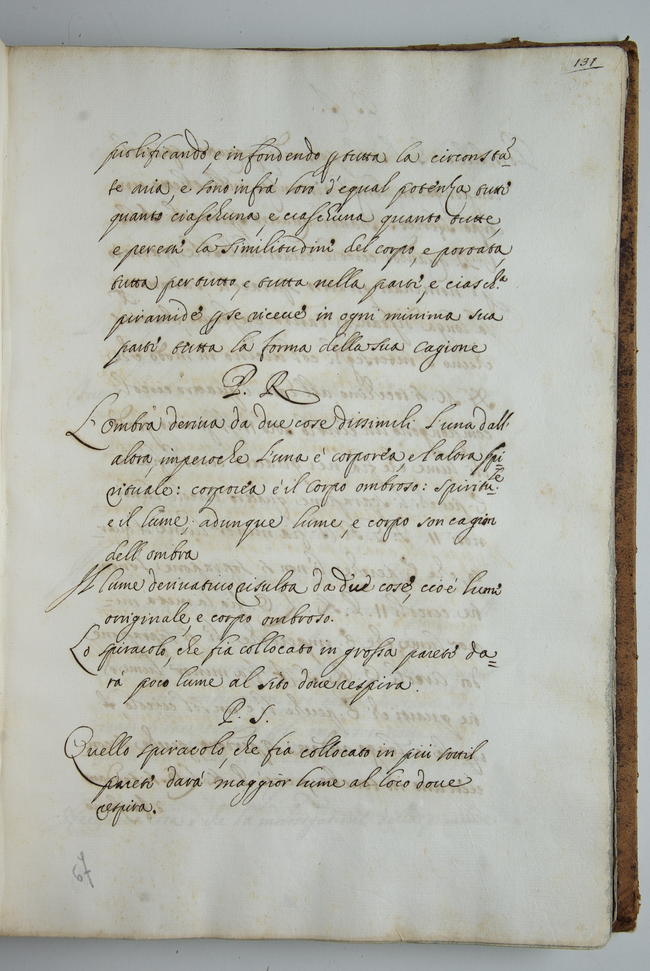 131
plificando, e infondendo p tutta la circonstã
te aria, e sono infra loro d'egual potenza tutte
quanto ciaschuna, e ciaschuna quanto tutte,
e per esse la similitudine del corpo, e portata
tutta per tutto, e tutta nella parte, e ciasch.ª
piramide p se riceve in ogni minima sua
parte tutta la forma della sua cagione
P. R
L'ombra deriva da due cose dissimili l'una dall'
altra imperoche l'una é corporea, e l'altra spi=
rituale: corporea é il corpo ombroso: spiritu=le
e il lume, adunque lume, e corpo son cagion
dell'ombra
Il lume derivativo risulta da due cose, cioé lume
originale, e corpo ombroso.
Lo spiracolo, che fia collocato in grossa parete da=
rá poco lume al sito dove respira.
P. S.
Quello spiracolo, che fia collocato in piú sottil
parete dará maggior lume al loco dove
respira.
67